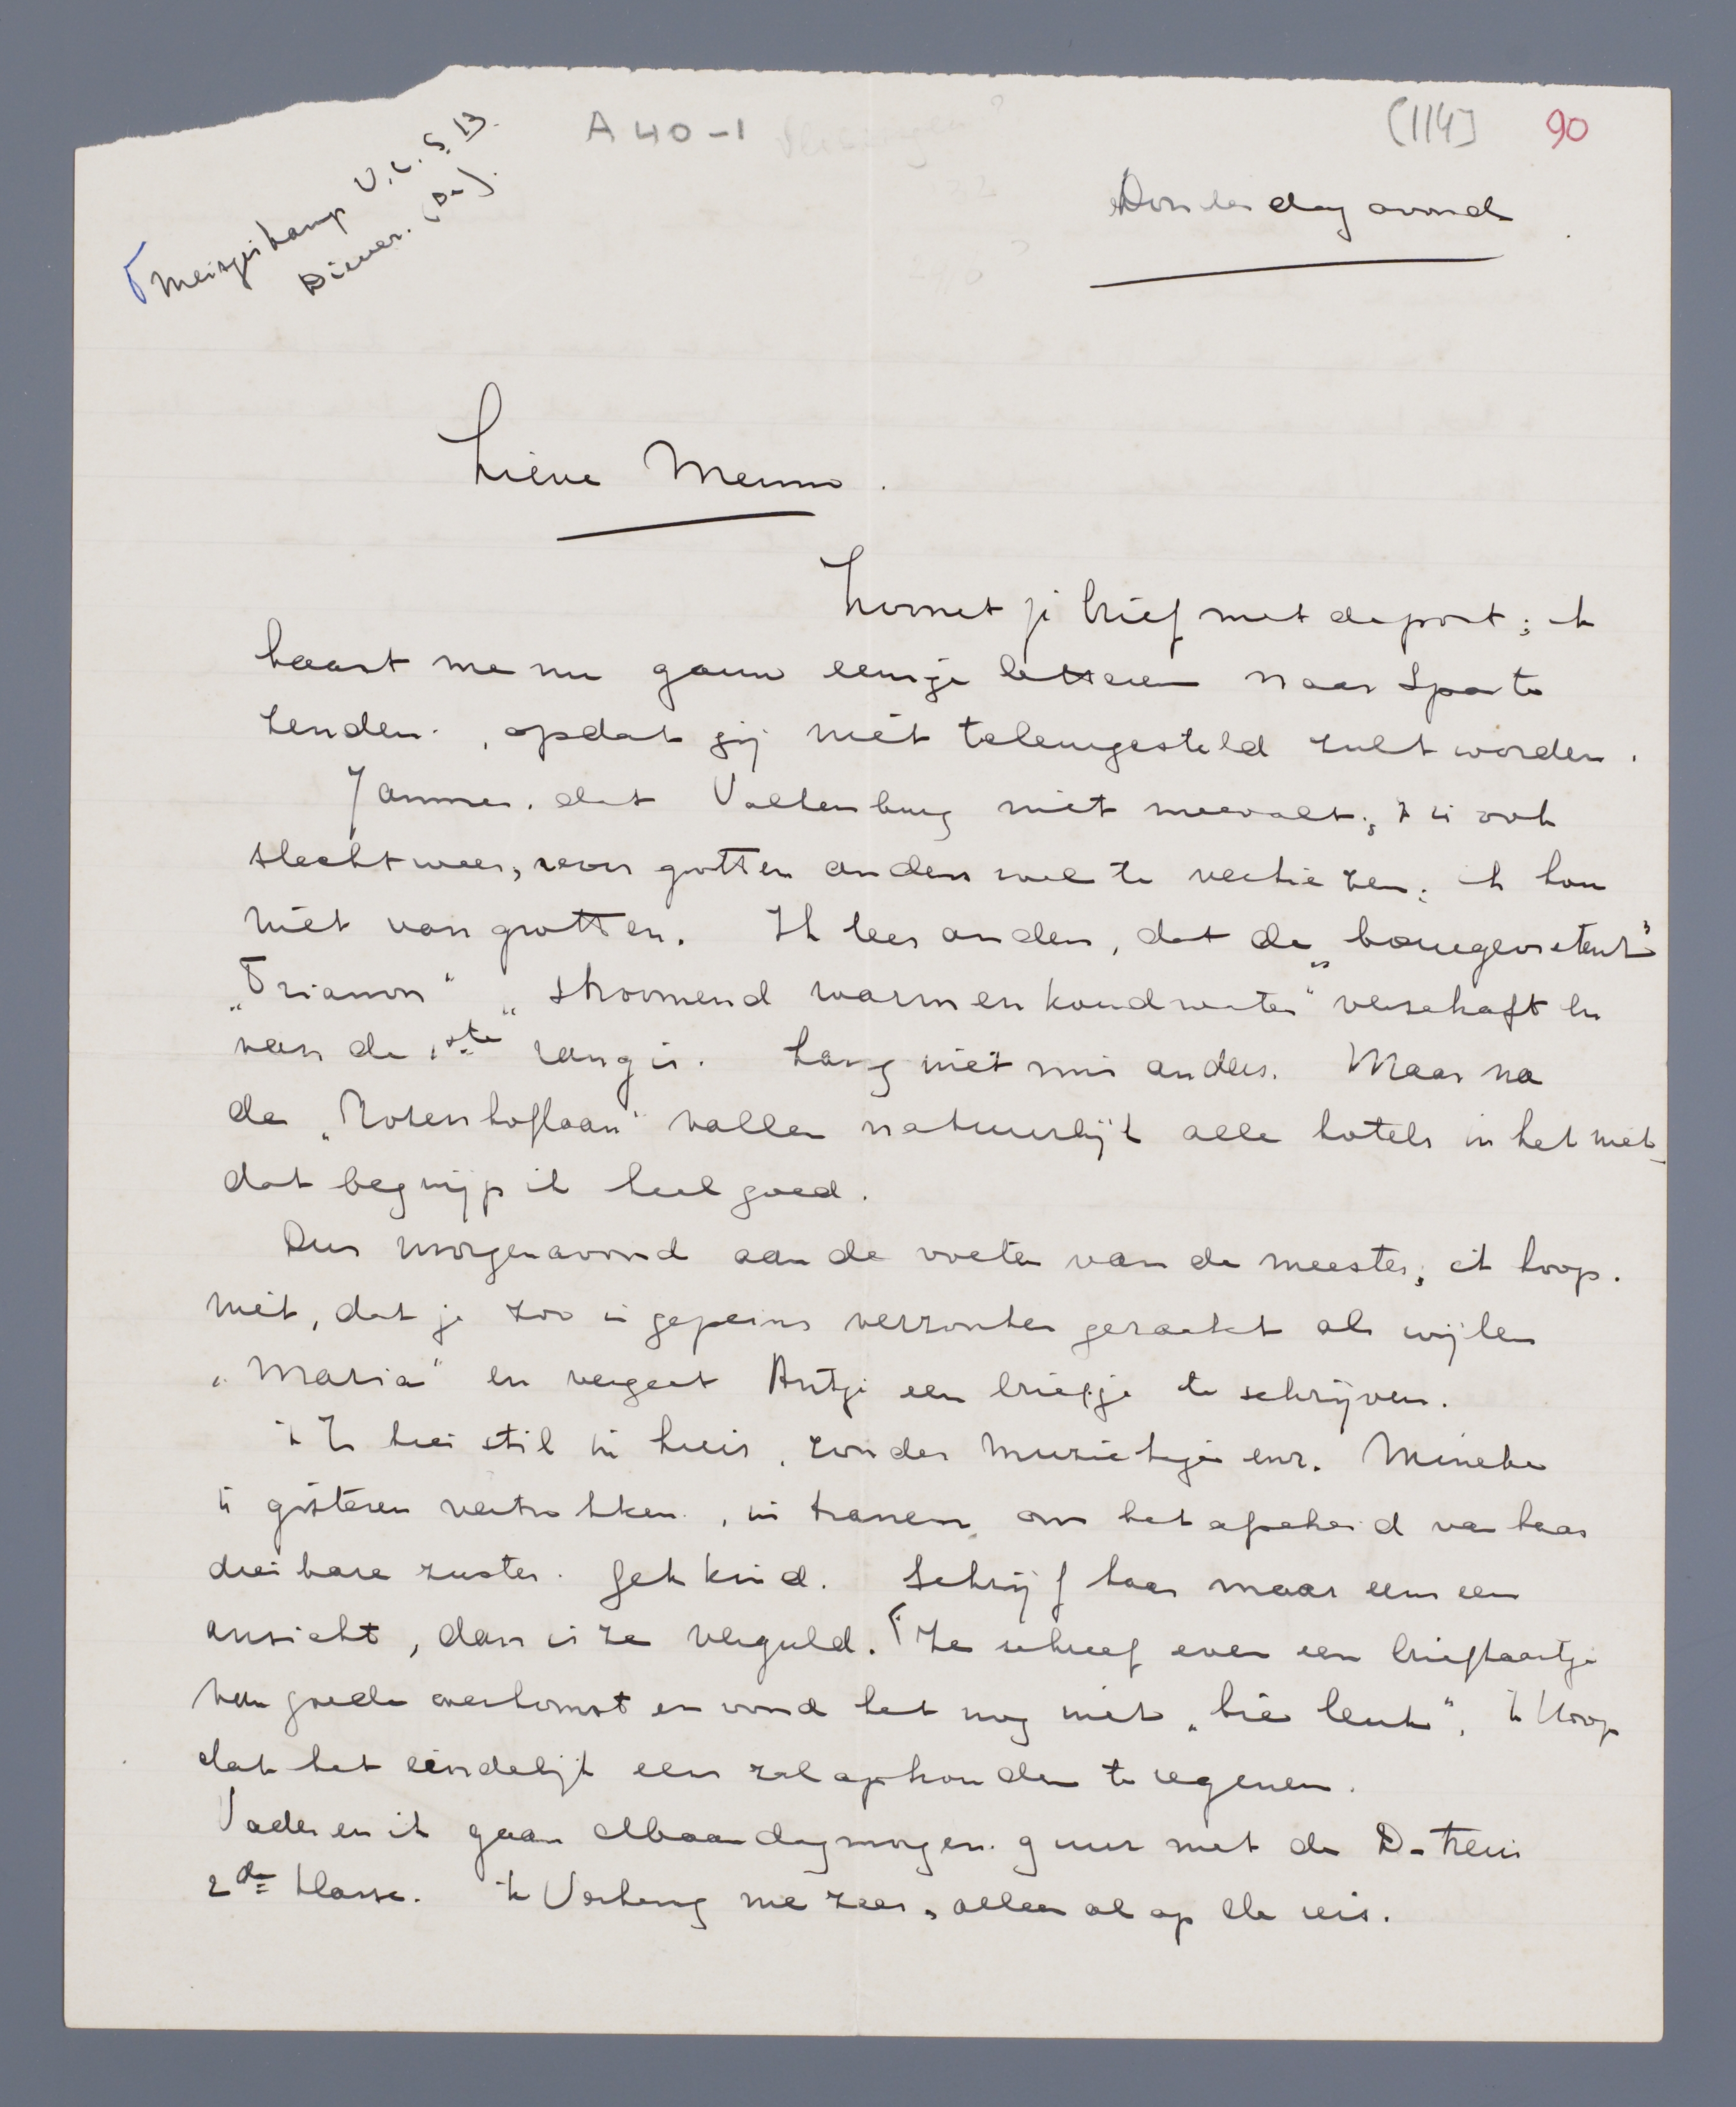 A 40-1
(114)
90
Meisjeskamp V.C.S. 13.
Diever. (Dr.)
Donderdag avond
Lieve Menno.
Zoonet je brief met de post; ik
haast me nu gauw eenige letteren naar Spa te
zenden, opdat jij niet teleurgesteld zult worden.
Jammer, dat Valkenburg niet meevalt; 't is ook
slecht weer, voor grotten anders wel te verkiezen; ik hou
niet van grotten. Ik lees anders, dat de
"Trianon" "stroomend warm en koud water" verschaft en
van de 1ste rang is. Lang niet mis anders. Maar na
de "Rozenhoflaan" vallen natuurlijk alle hotels in het niet
dat begrijp ik heel goed.
Dus morgenavond aan de voeten van de meester; ik hoop.
niet, dat je zoo in gepeins verzonken geraakt als wijlen
"Maria" en vergeet Antje een briefje te schrijven.
't Is hier stil in huis, zonder muziekje enz. Mineke
is gisteren vertrokken, in tranen om het afscheid van haar
dierbare zuster. Gek kind. Schrijf haar maar eens een
ansicht, dan is ze verguld. Ze schreef even een briefkaartje
van goede overkomst en vond het nog niet "hie leuk". Ik hoop
dat het eindelijk eens zal ophouden te regenen.
Vader en ik gaan Maandagmorgen 9 uur met de D-trein
2de klasse. Ik verheug me zeer, alleen al op de reis.